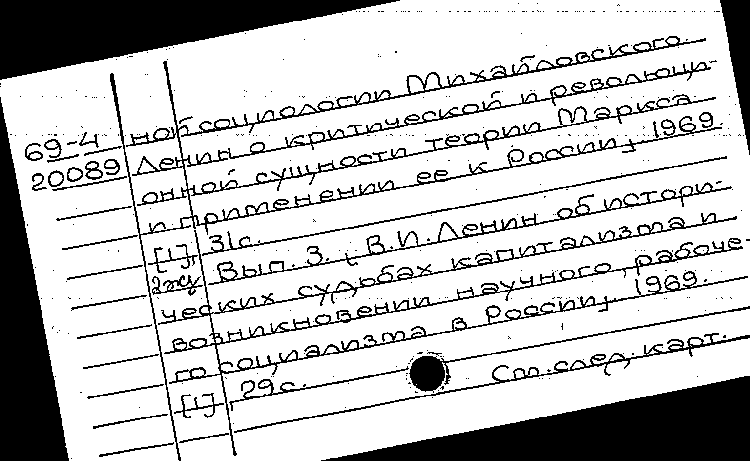 69-4
20089
ной социологии Михайловского.
Ленин о критической и революци-
онной сущности теории Маркса
и применении ее к России], 1969.
[1], 31с.
Вып. 3. [В.И. Ленин об истори-
ческих судьбах капитализма и
возникновении научного, рабоче-
го социализма в России], 1969.
[1], 29с.
См. след. карт.